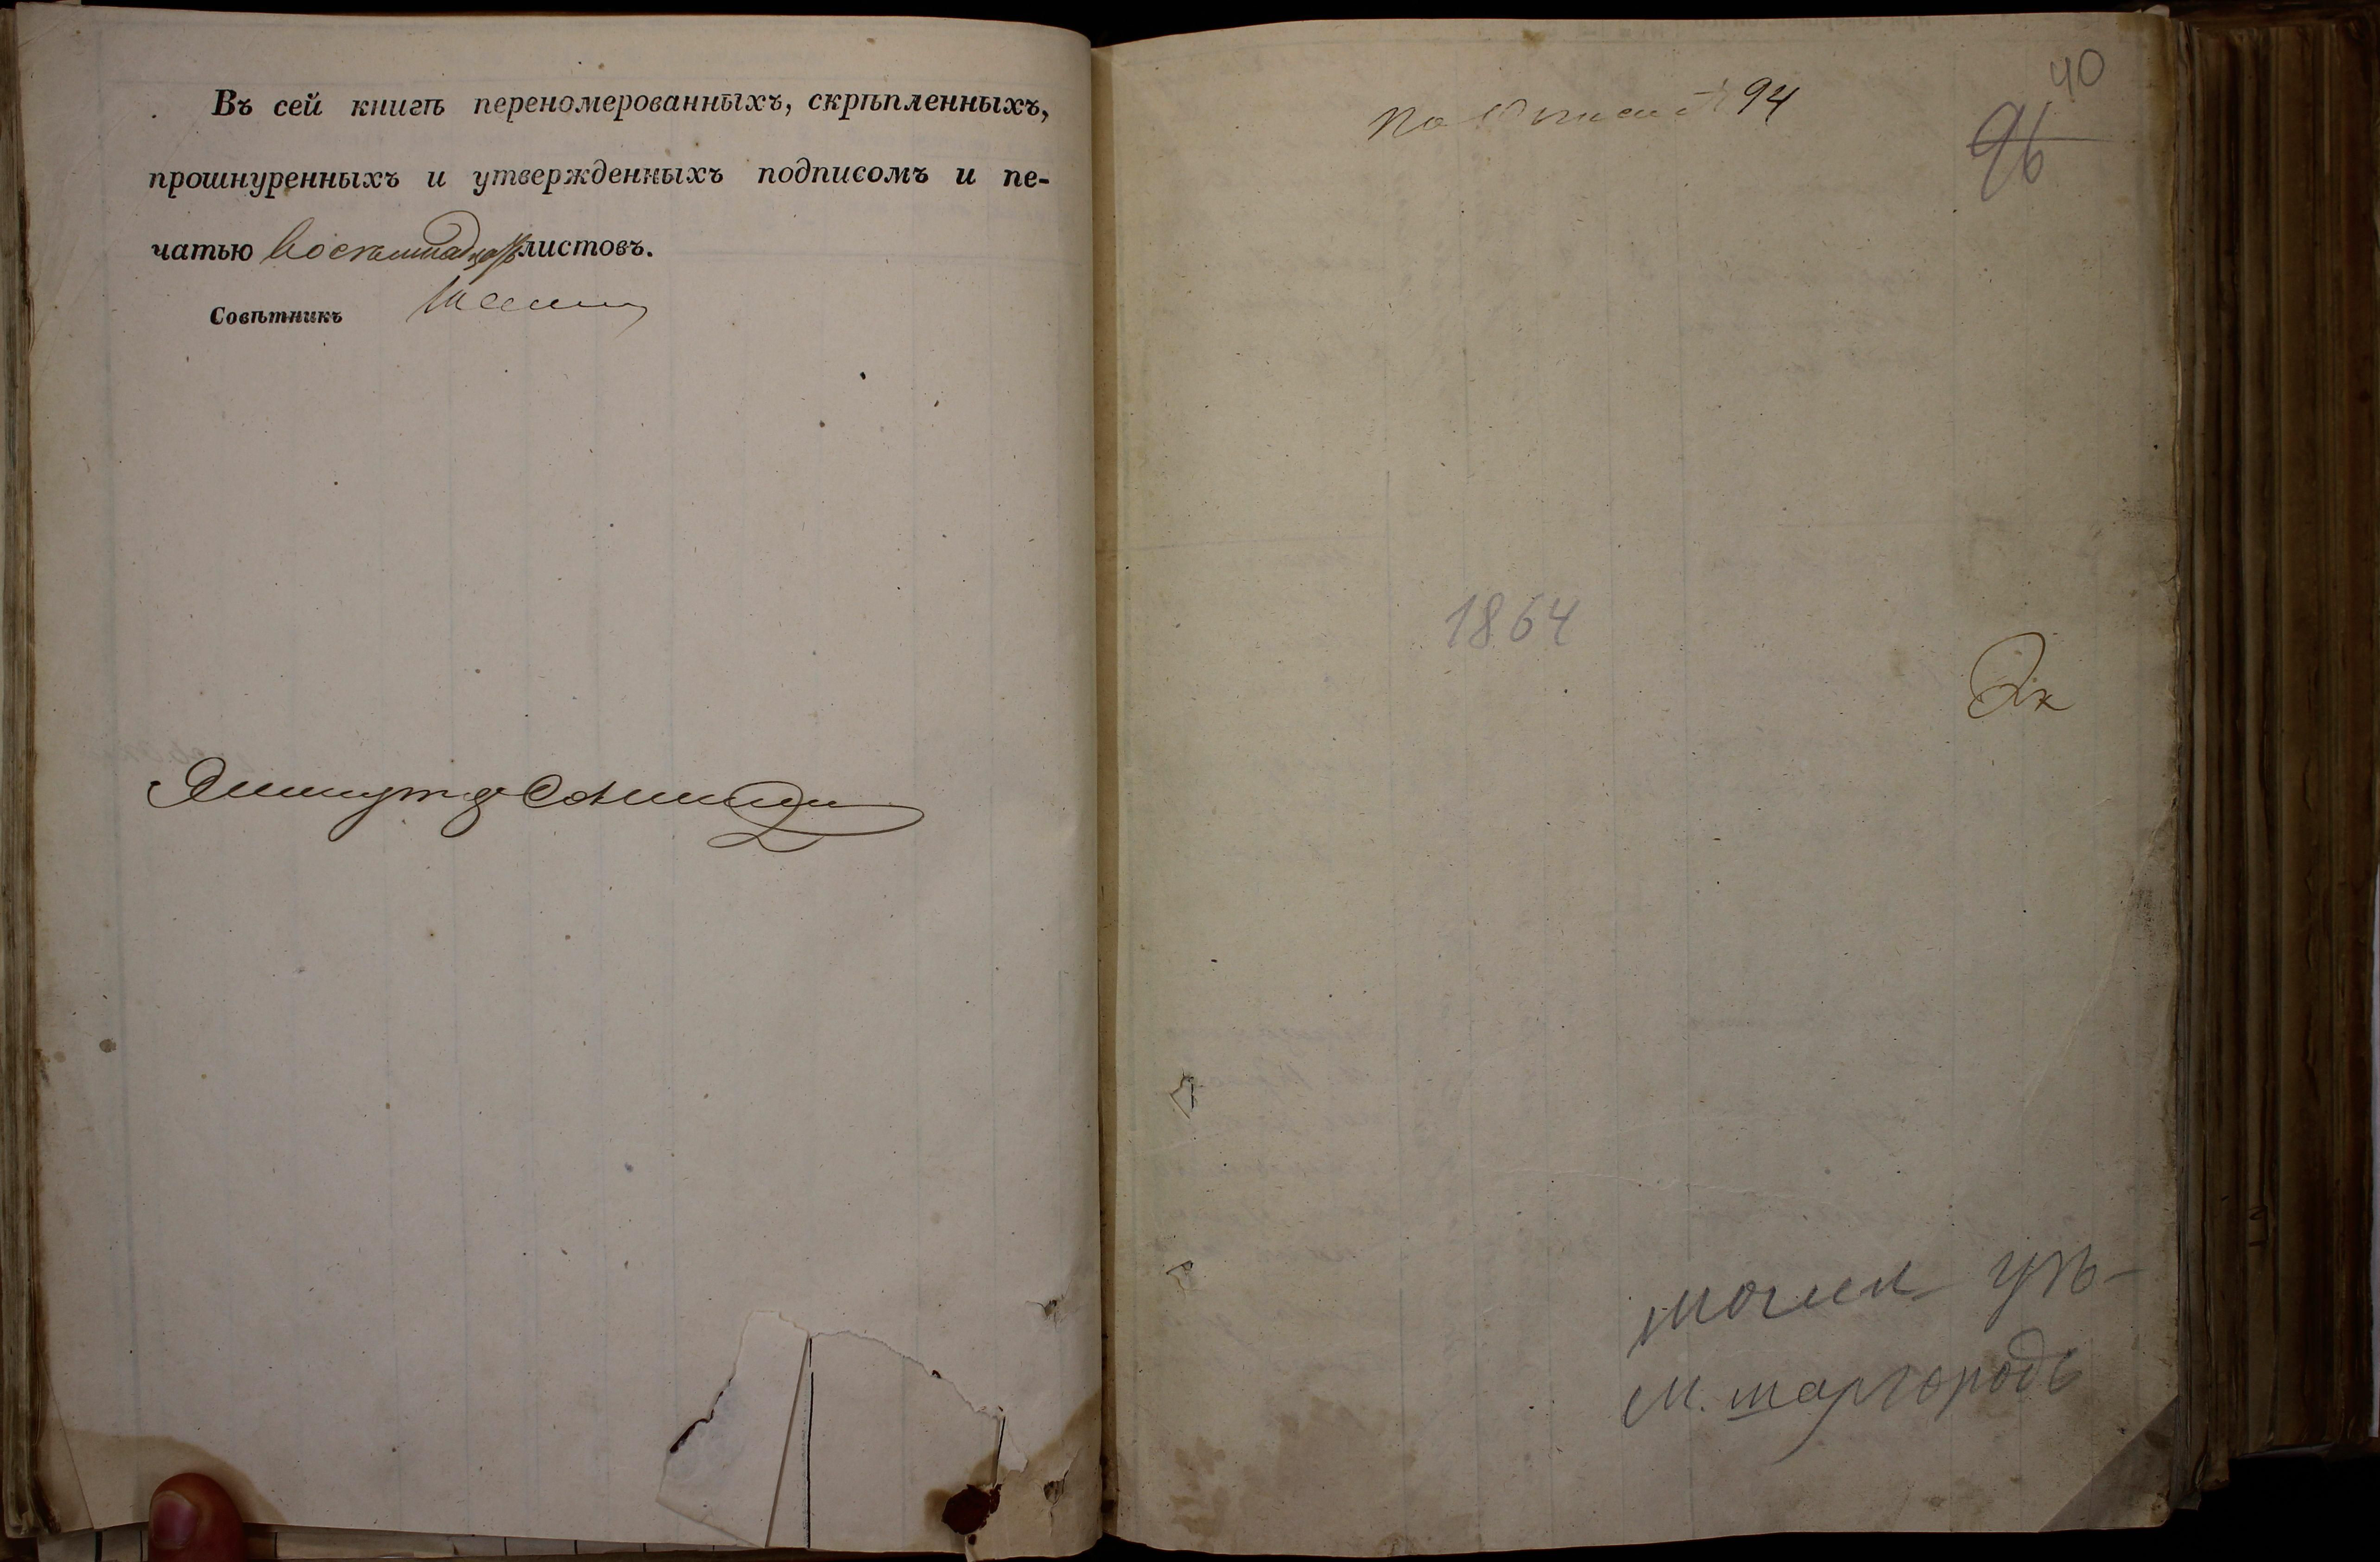 Въ сей книгѣ переномерованныхъ, скрѣпленныхъ,
прошнуренныхъ и утвержденныхъ подписомъ и пе-
чатью листовъ.
Совѣтникъ
По Описи 94
40
96
1864
могил уѣ-
м. шаргородъ